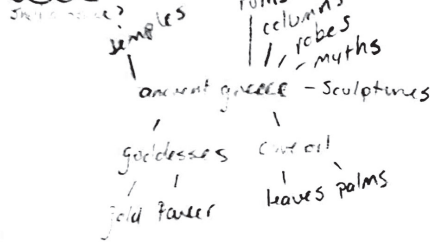 ruins
columns
temples
robes
myths
ancient greece - Sculptures
goddesses
olive oil
leaves palms
gold Power